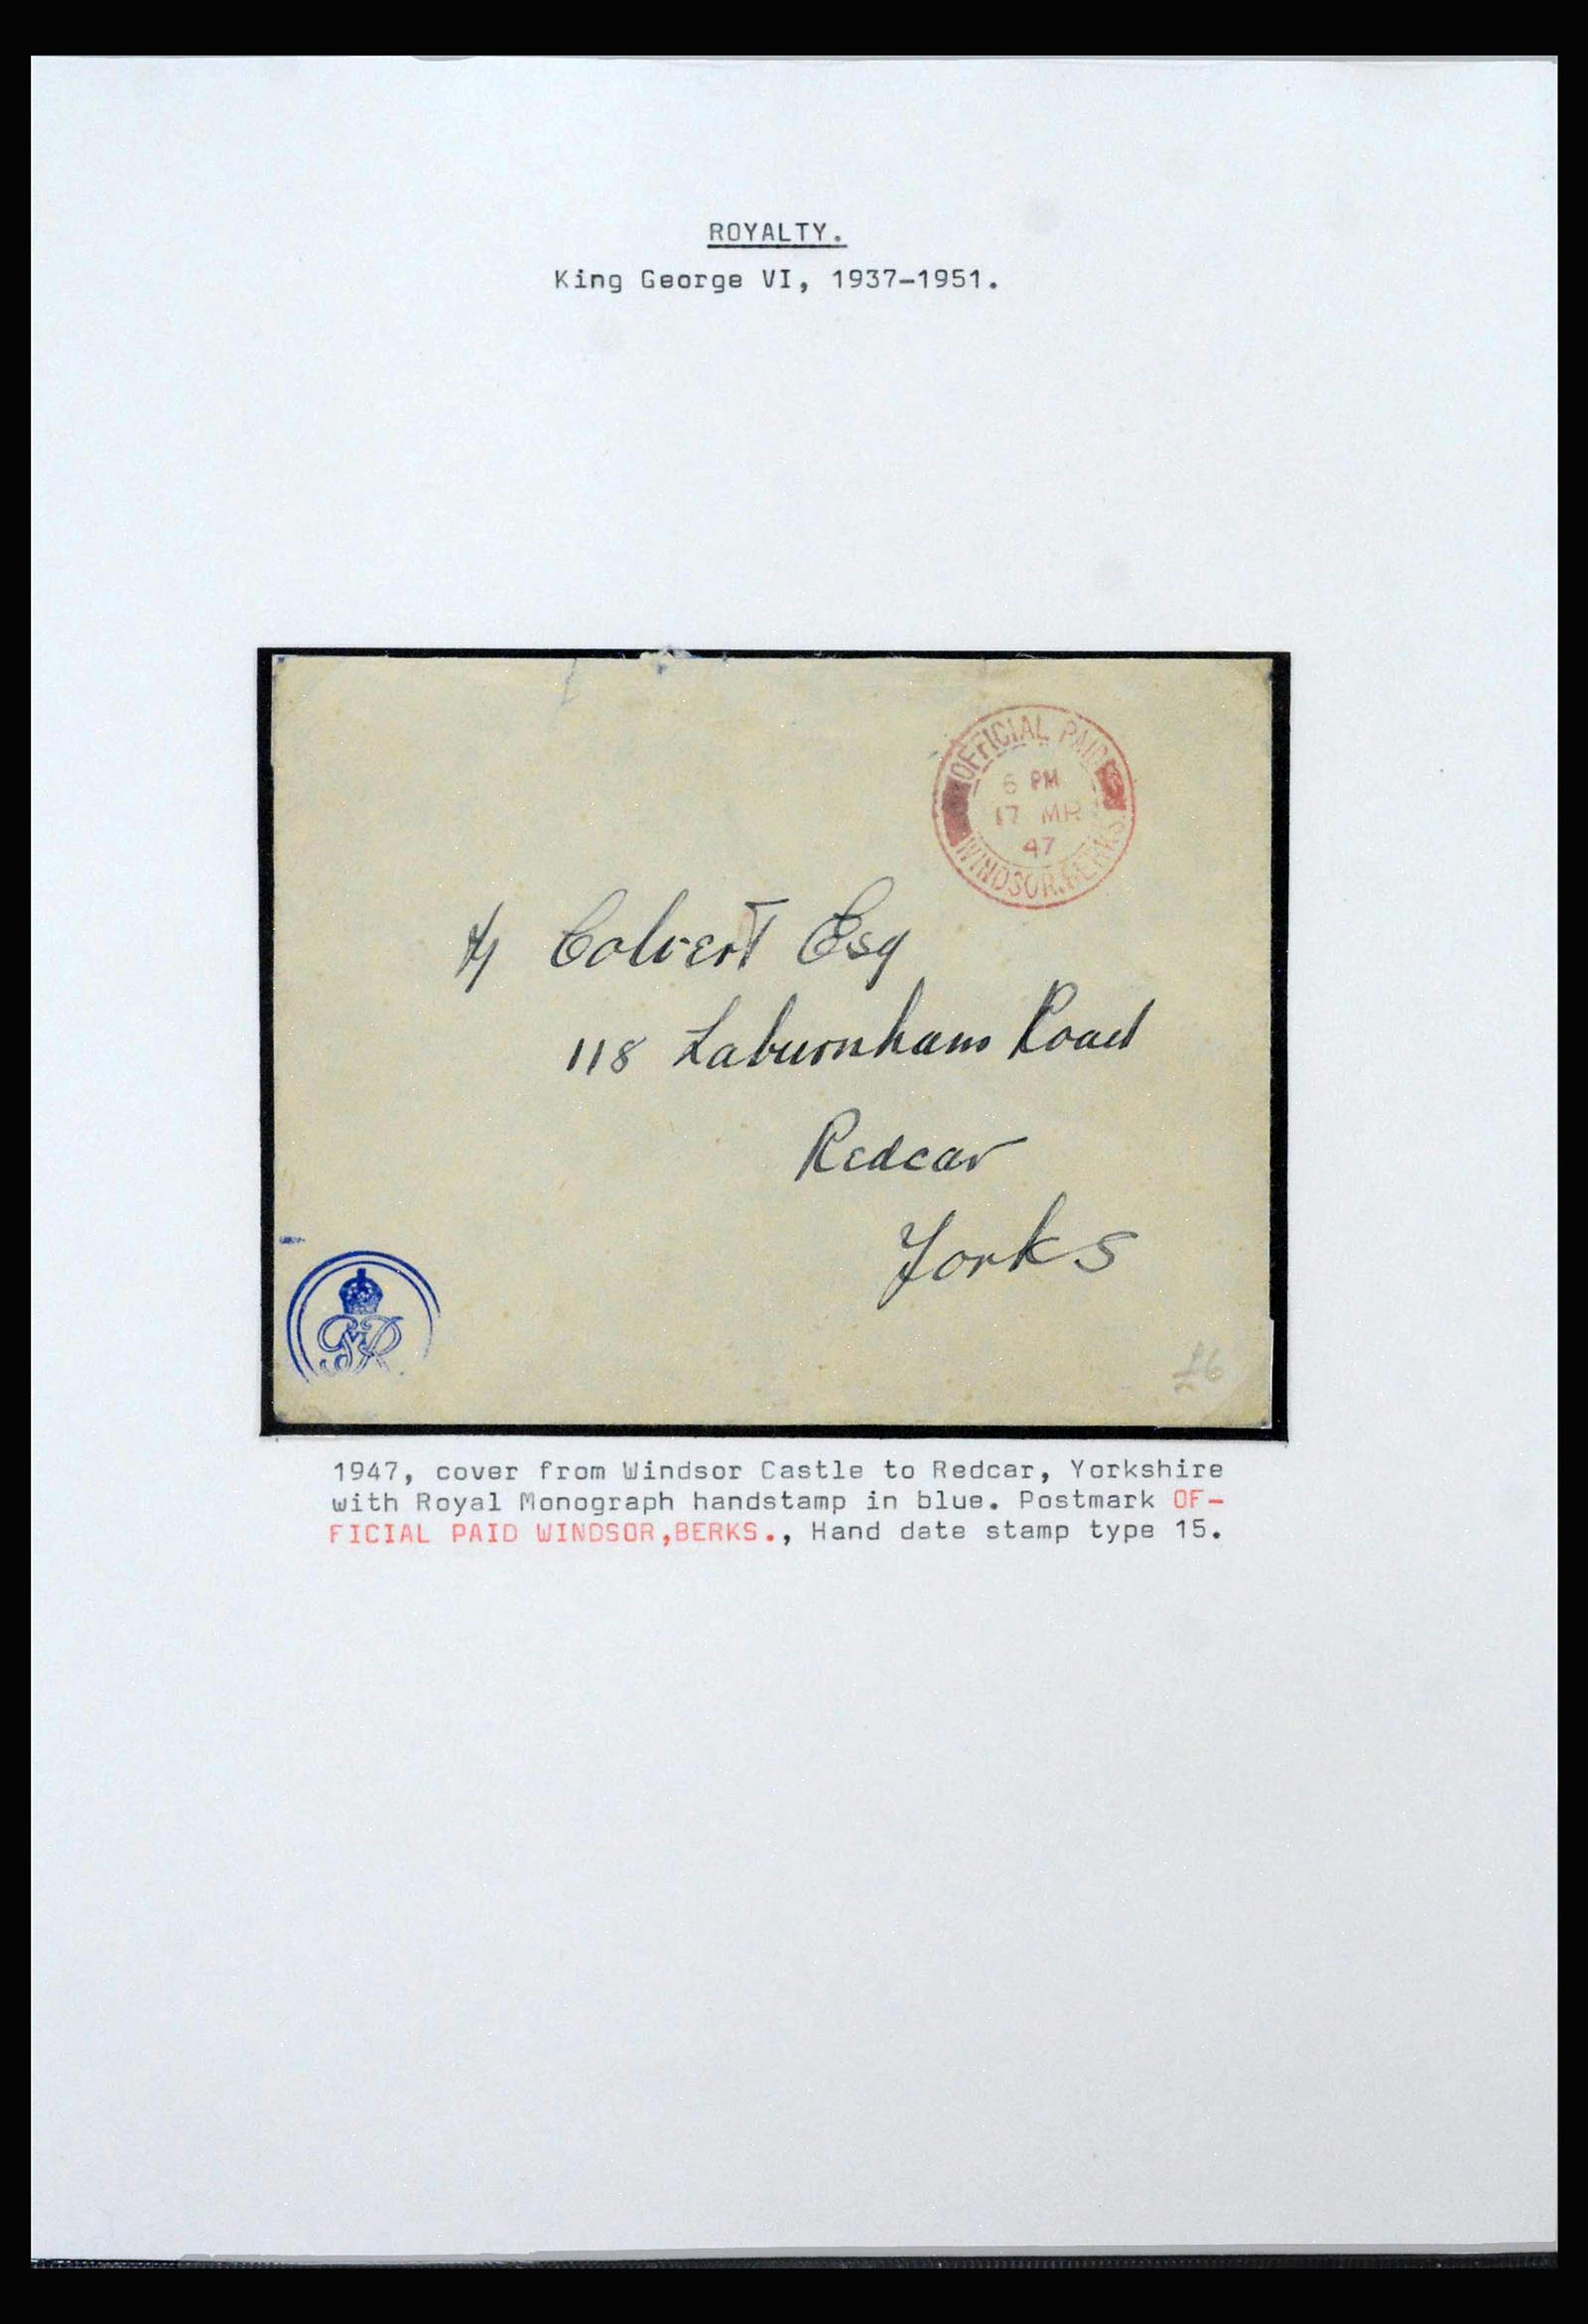 ROYALTY.
King George VI, 1937-1951.
OFFICIAL PAID
6 PM
17 MR
47
WINDSOR. BERKS.
Colvert Esq
118 Laburnham Road
Redcar
Yorks
GVIR
£6
1947, cover from Windsor Castle to Redcar, Yorkshire
with Royal Monograph handstamp in blue. Postmark OF-
FICIAL PAID WINDSOR,BERKS., Hand date stamp type 15.